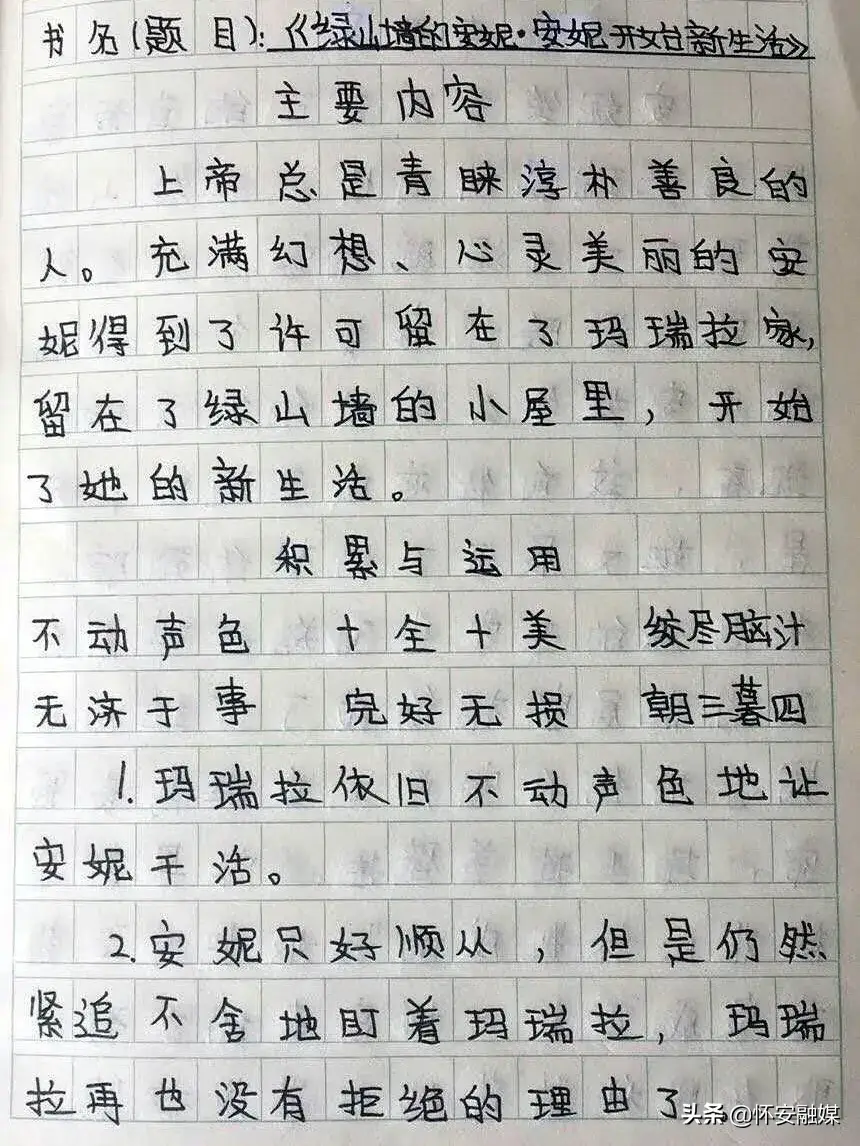 书名(题目):《绿山墙的安妮·安妮开始新生活》
主要内容
上帝总是青睐淳朴善良的
人。充满幻想、心灵美丽的安
妮得到了许可留在了玛瑞拉家,
留在了绿山墙的小屋里,开始
了她的新生活。
积累与运用
不动声色 十全十美 绞尽脑汁
无济于事 完好无损 朝三暮四
1.玛瑞拉依旧不动声色地让
安妮干活。
2.安妮只好顺从,但是仍然
紧追不舍地盯着玛瑞拉,玛瑞
拉再也没有拒绝的理由了
头条@怀安融媒